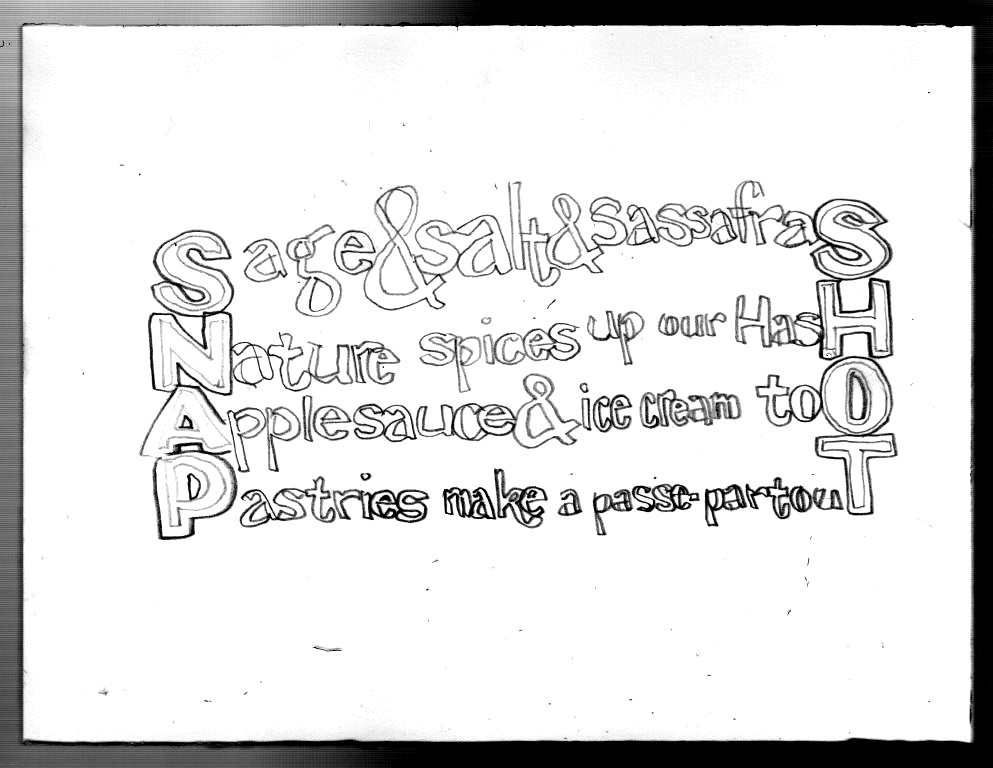 Sage & salt & sassafraS
Nature spices up our HasH
Applesauce & ice cream toO
Pastries make a passe-partouT